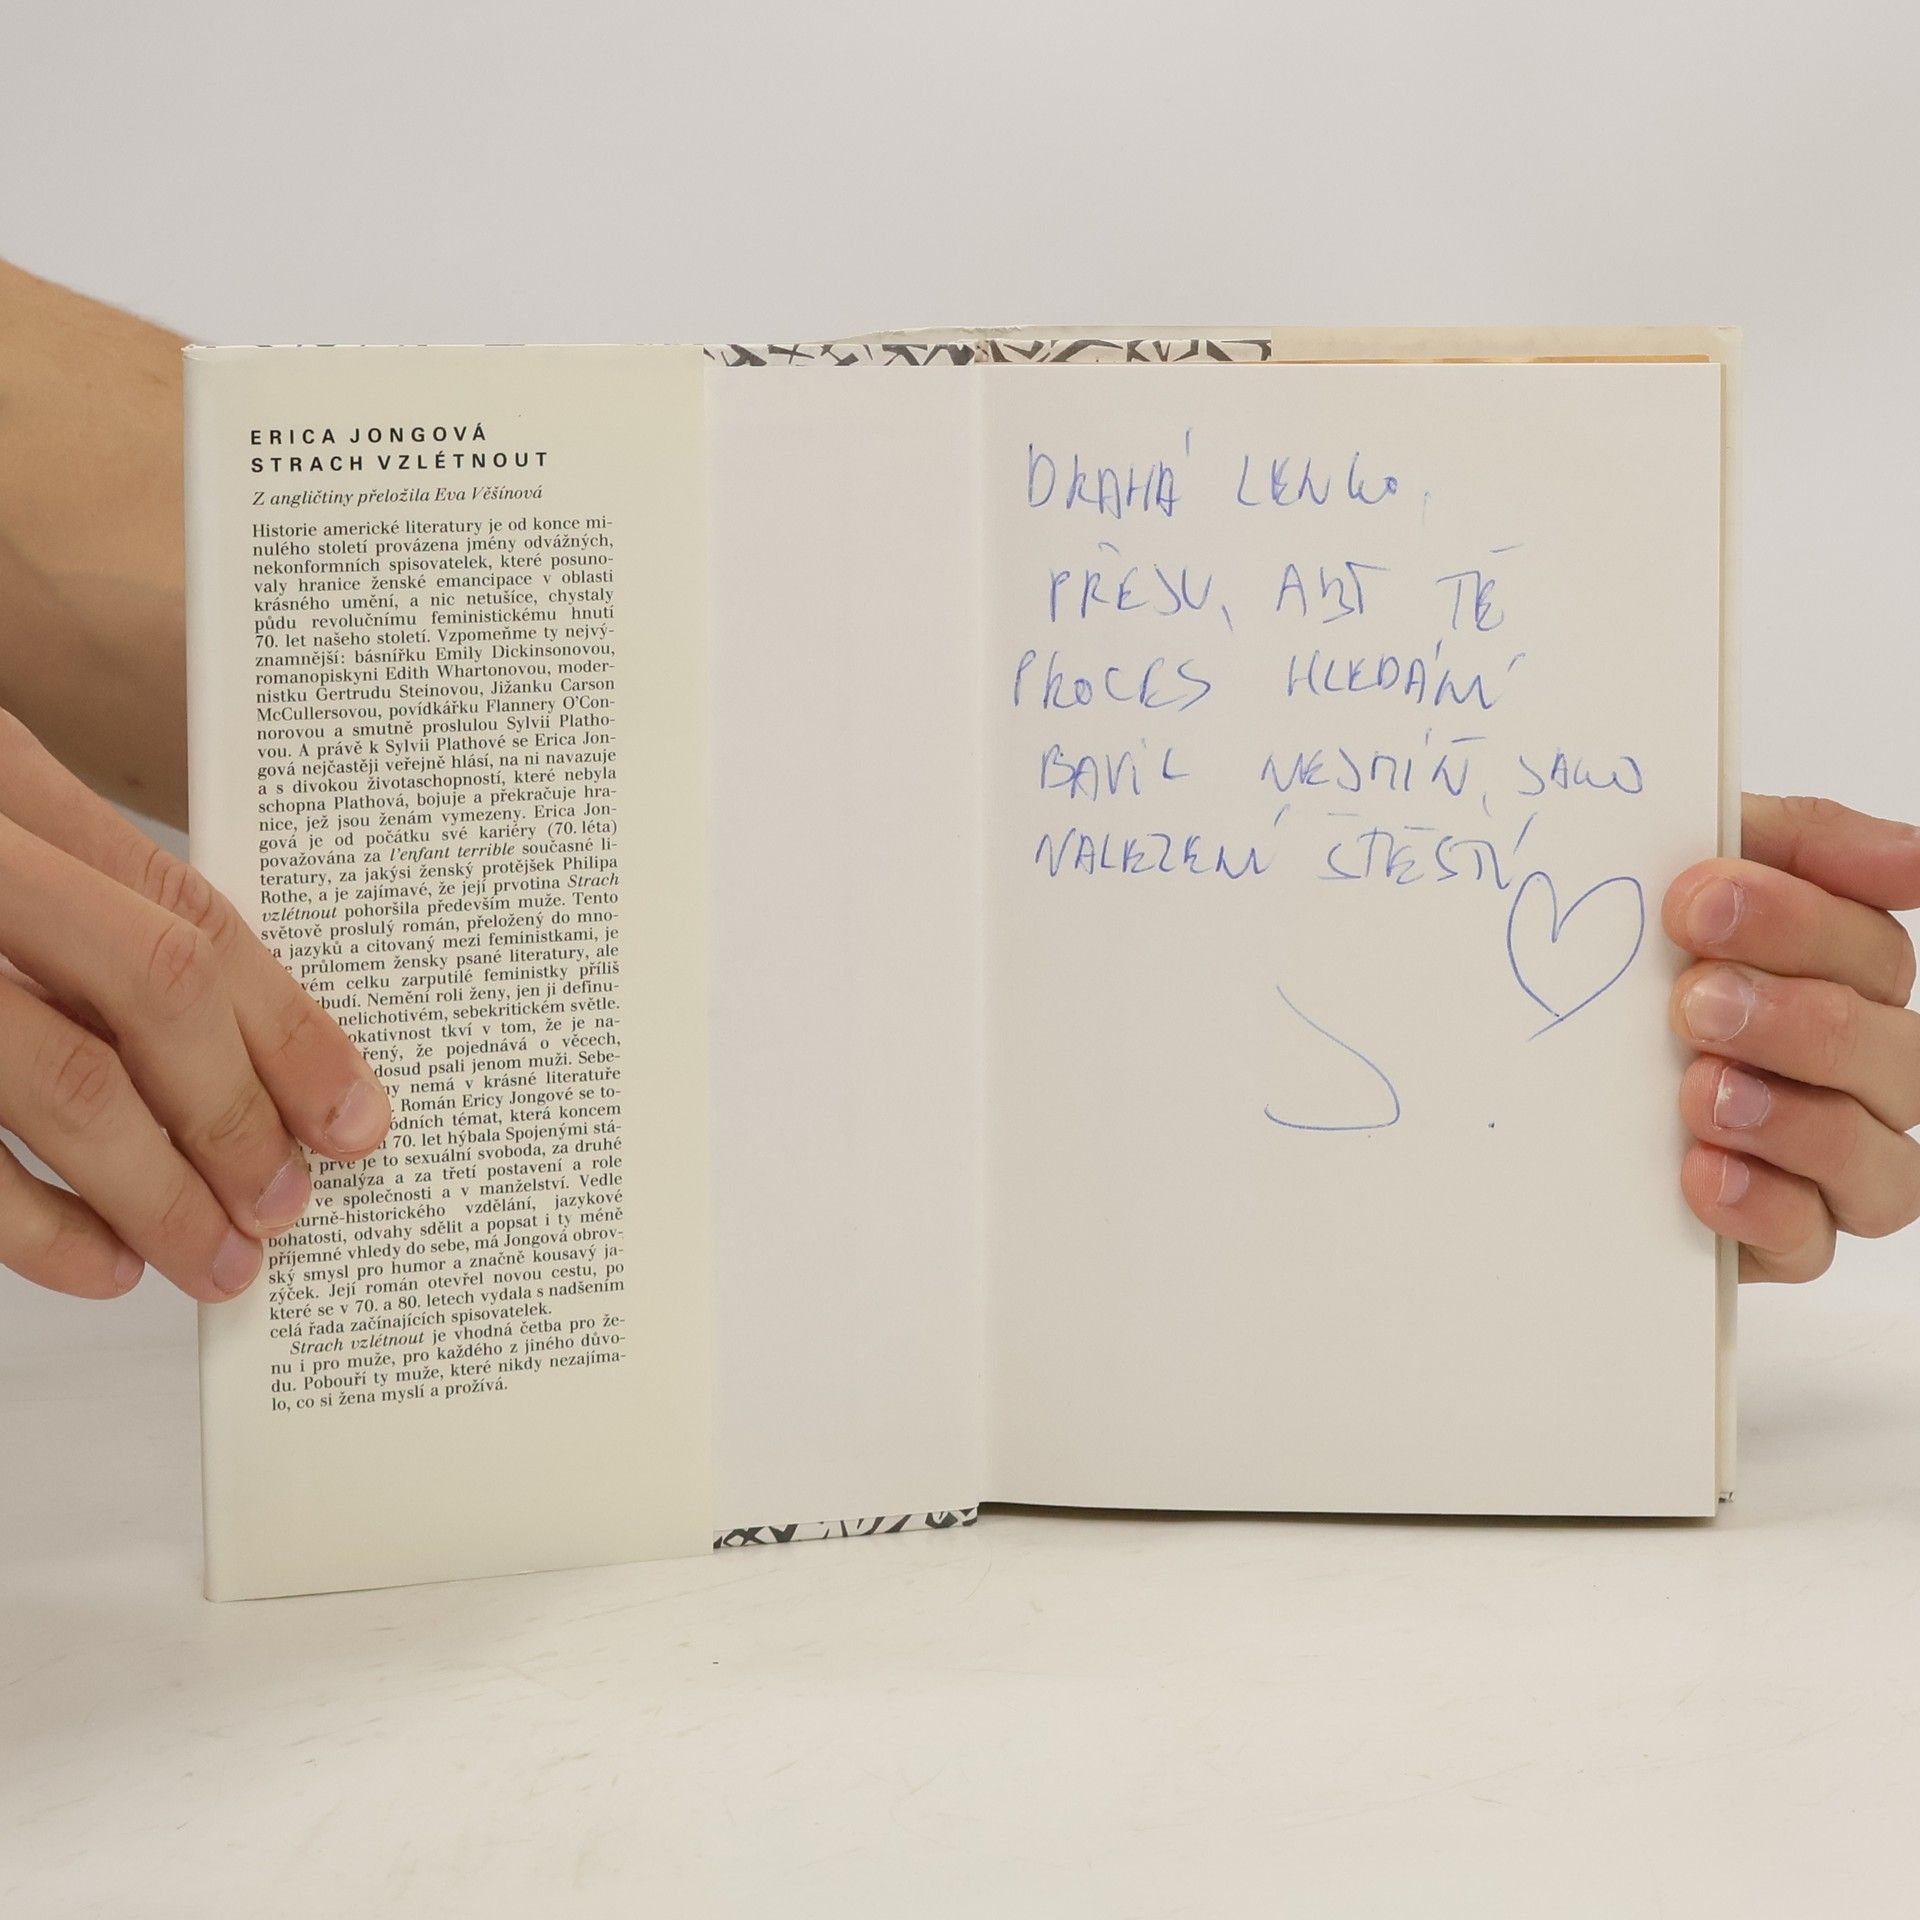 ERICA JONGOVÁ
STRACH VZLÉTNOUT
Z angličtiny přeložila Eva Věšínová
Historie americké literatury je od konce mi-
nulého století provázena jmény odvážných,
nekonformních spisovatelek, které posuno-
valy hranice ženské emancipace v oblasti
krásného umění, a nic netušíce, chystaly
půdu revolučnímu feministickému hnutí
70. let našeho století. Vzpomeňme ty nejvý-
znamnější: básnířku Emily Dickinsonovou,
romanopiskyni Edith Whartonovou, moder-
nistku Gertrudu Steinovou, Jižanku Carson
McCullersovou, povídkářku Flannery O'Con-
norovou a smutně proslulou Sylvii Platho-
vou. A právě k Sylvii Plathové se Erica Jon-
gová nejčastěji veřejně hlásí, na ni navazuje
a s divokou životaschopností, které nebyla
schopna Plathová, bojuje a překračuje hra-
nice, jež jsou ženám vymezeny. Erica Jon-
gová je od počátku své kariéry (70. léta)
považována za l'enfant terrible současné li-
teratury, za jakýsi ženský protějšek Philipa
Rothe, a je zajímavé, že její prvotina Strach
vzlétnout pohoršila především muže. Tento
světově proslulý román, přeložený do mno-
a jazyků a citovaný mezi feministkami, je
průlomem žensky psané literatury, ale
vém celku zarputilé feministky příliš
budí. Nemění roli ženy, jen ji definu-
nelichotivém, sebekritickém světle.
okativnost tkví v tom, že je na-
řený, že pojednává o věcech,
dosud psali jenom muži. Sebe-
ny nemá v krásné literatuře
Román Ericy Jongové se to-
ódních témat, která koncem
70. let hýbala Spojenými stá-
prvé je to sexuální svoboda, za druhé
oanalýza a za třetí postavení a role
ve společnosti a v manželství. Vedle
turně-historického vzdělání, jazykové
bohatosti, odvahy sdělit a popsat i ty méně
příjemné vhledy do sebe, má Jongová obrov-
ský smysl pro humor a značně kousavý ja-
zýček. Její román otevřel novou cestu, po
které se v 70. a 80. letech vydala s nadšením
celá řada začínajících spisovatelek.
Strach vzlétnout je vhodná četba pro že-
nu i pro muže, pro každého z jiného důvo-
du. Pobouří ty muže, které nikdy nezajíma-
lo, co si žena myslí a prožívá.
DRAHÁ LENKO,
PŘEJU, ABY TĚ
PROCES HLEDÁNÍ
BAVIL NEJMÍŇ, JAKO
NALEZENÍ ŠTĚSTÍ
J.